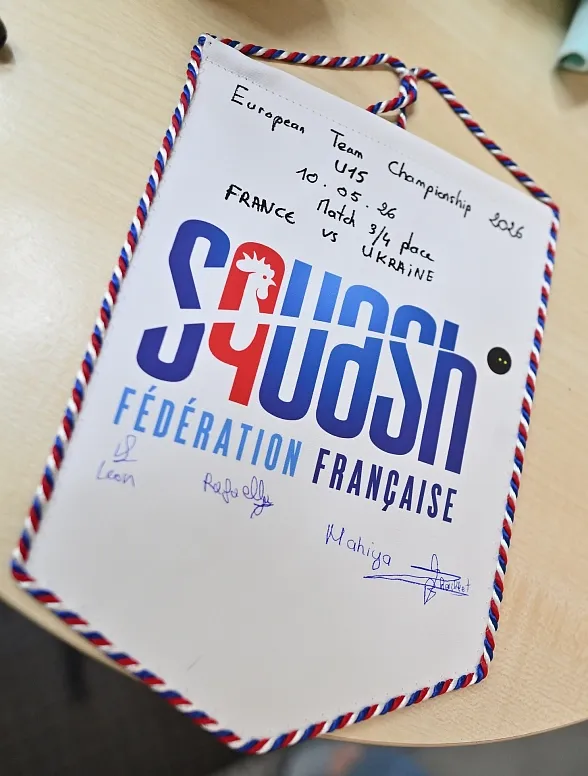 European Team Championship 2026
U15
10.05.26
Match 3/4 place
FRANCE vs UKRAINE
squash
FÉDÉRATION FRANÇAISE
Leon
Mahiya